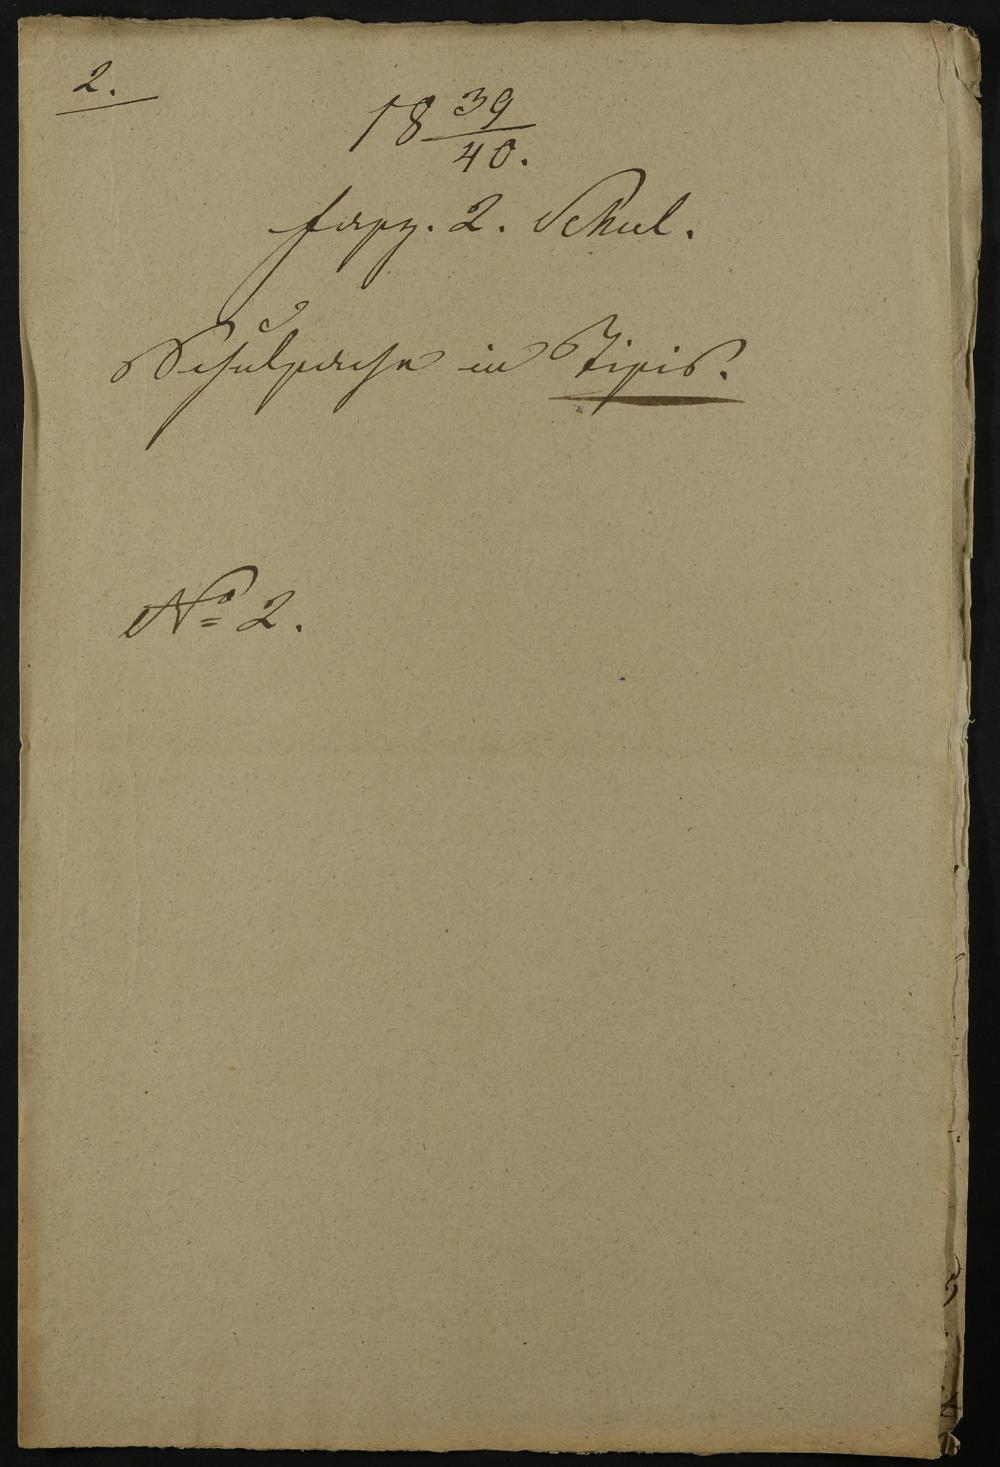 2.
18 39/40.
fasz. 2. Schul.
Schulsache in
No 2.